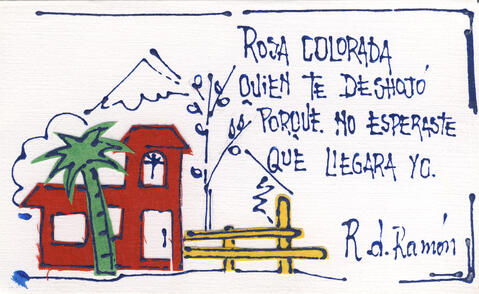 ROSA COLORADA
QUIEN TE DESHOJÓ
PORQUE NO ESPERASTE
QUE LLEGARA YO.
R.d. Ramón